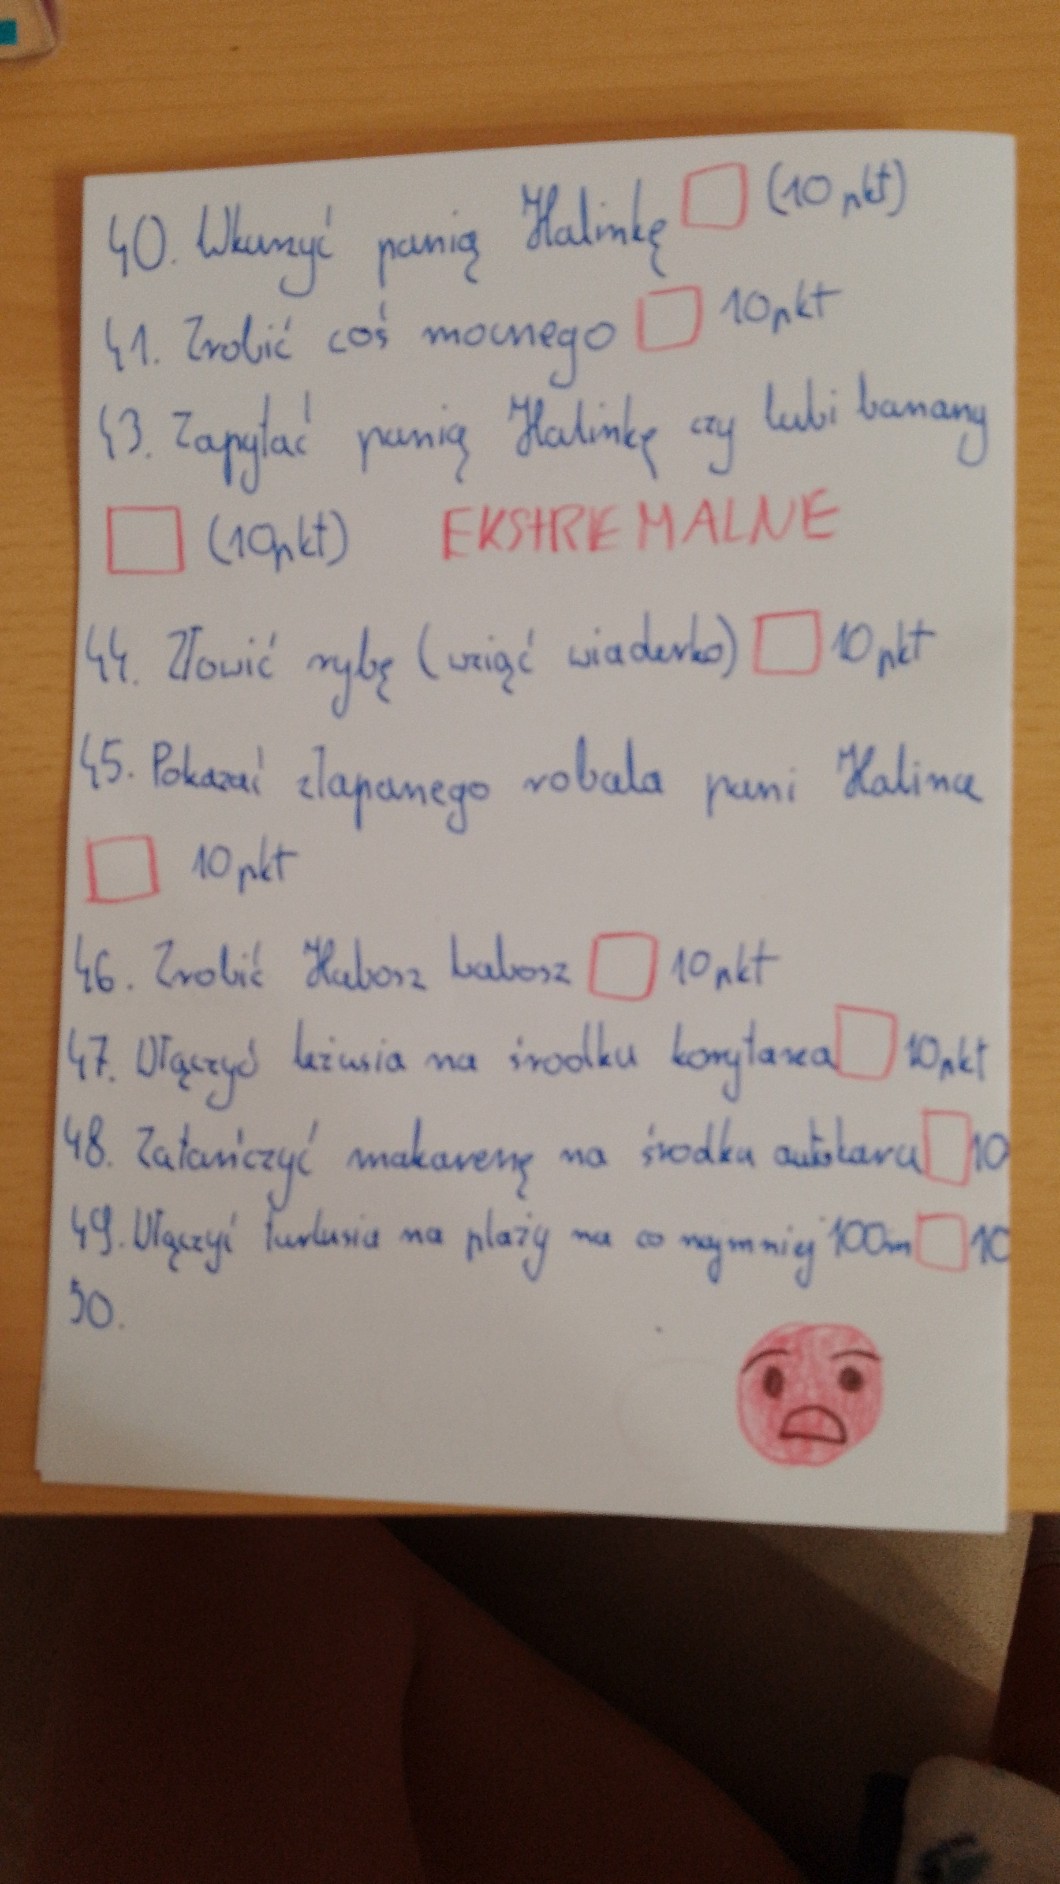 40. Wkurzyć panią Halinkę (10 pkt)
41. Zrobić coś mocnego 10pkt
43. Zapytać panią Halinkę czy lubi banany
(10pkt) EKSTREMALNE
44. Złowić rybę (wziąć wiaderko) 10 pkt
45. Pokazać złapanego robala pani Halince
10 pkt
46. Zrobić Habosz babosz 10 pkt
47. Włączyć leżusia na środku korytarza 10pkt
48. Zatańczyć makarenę na środku autokaru 10
49. Włączyć turlusia na plaży na co najmniej 100m 10
50.